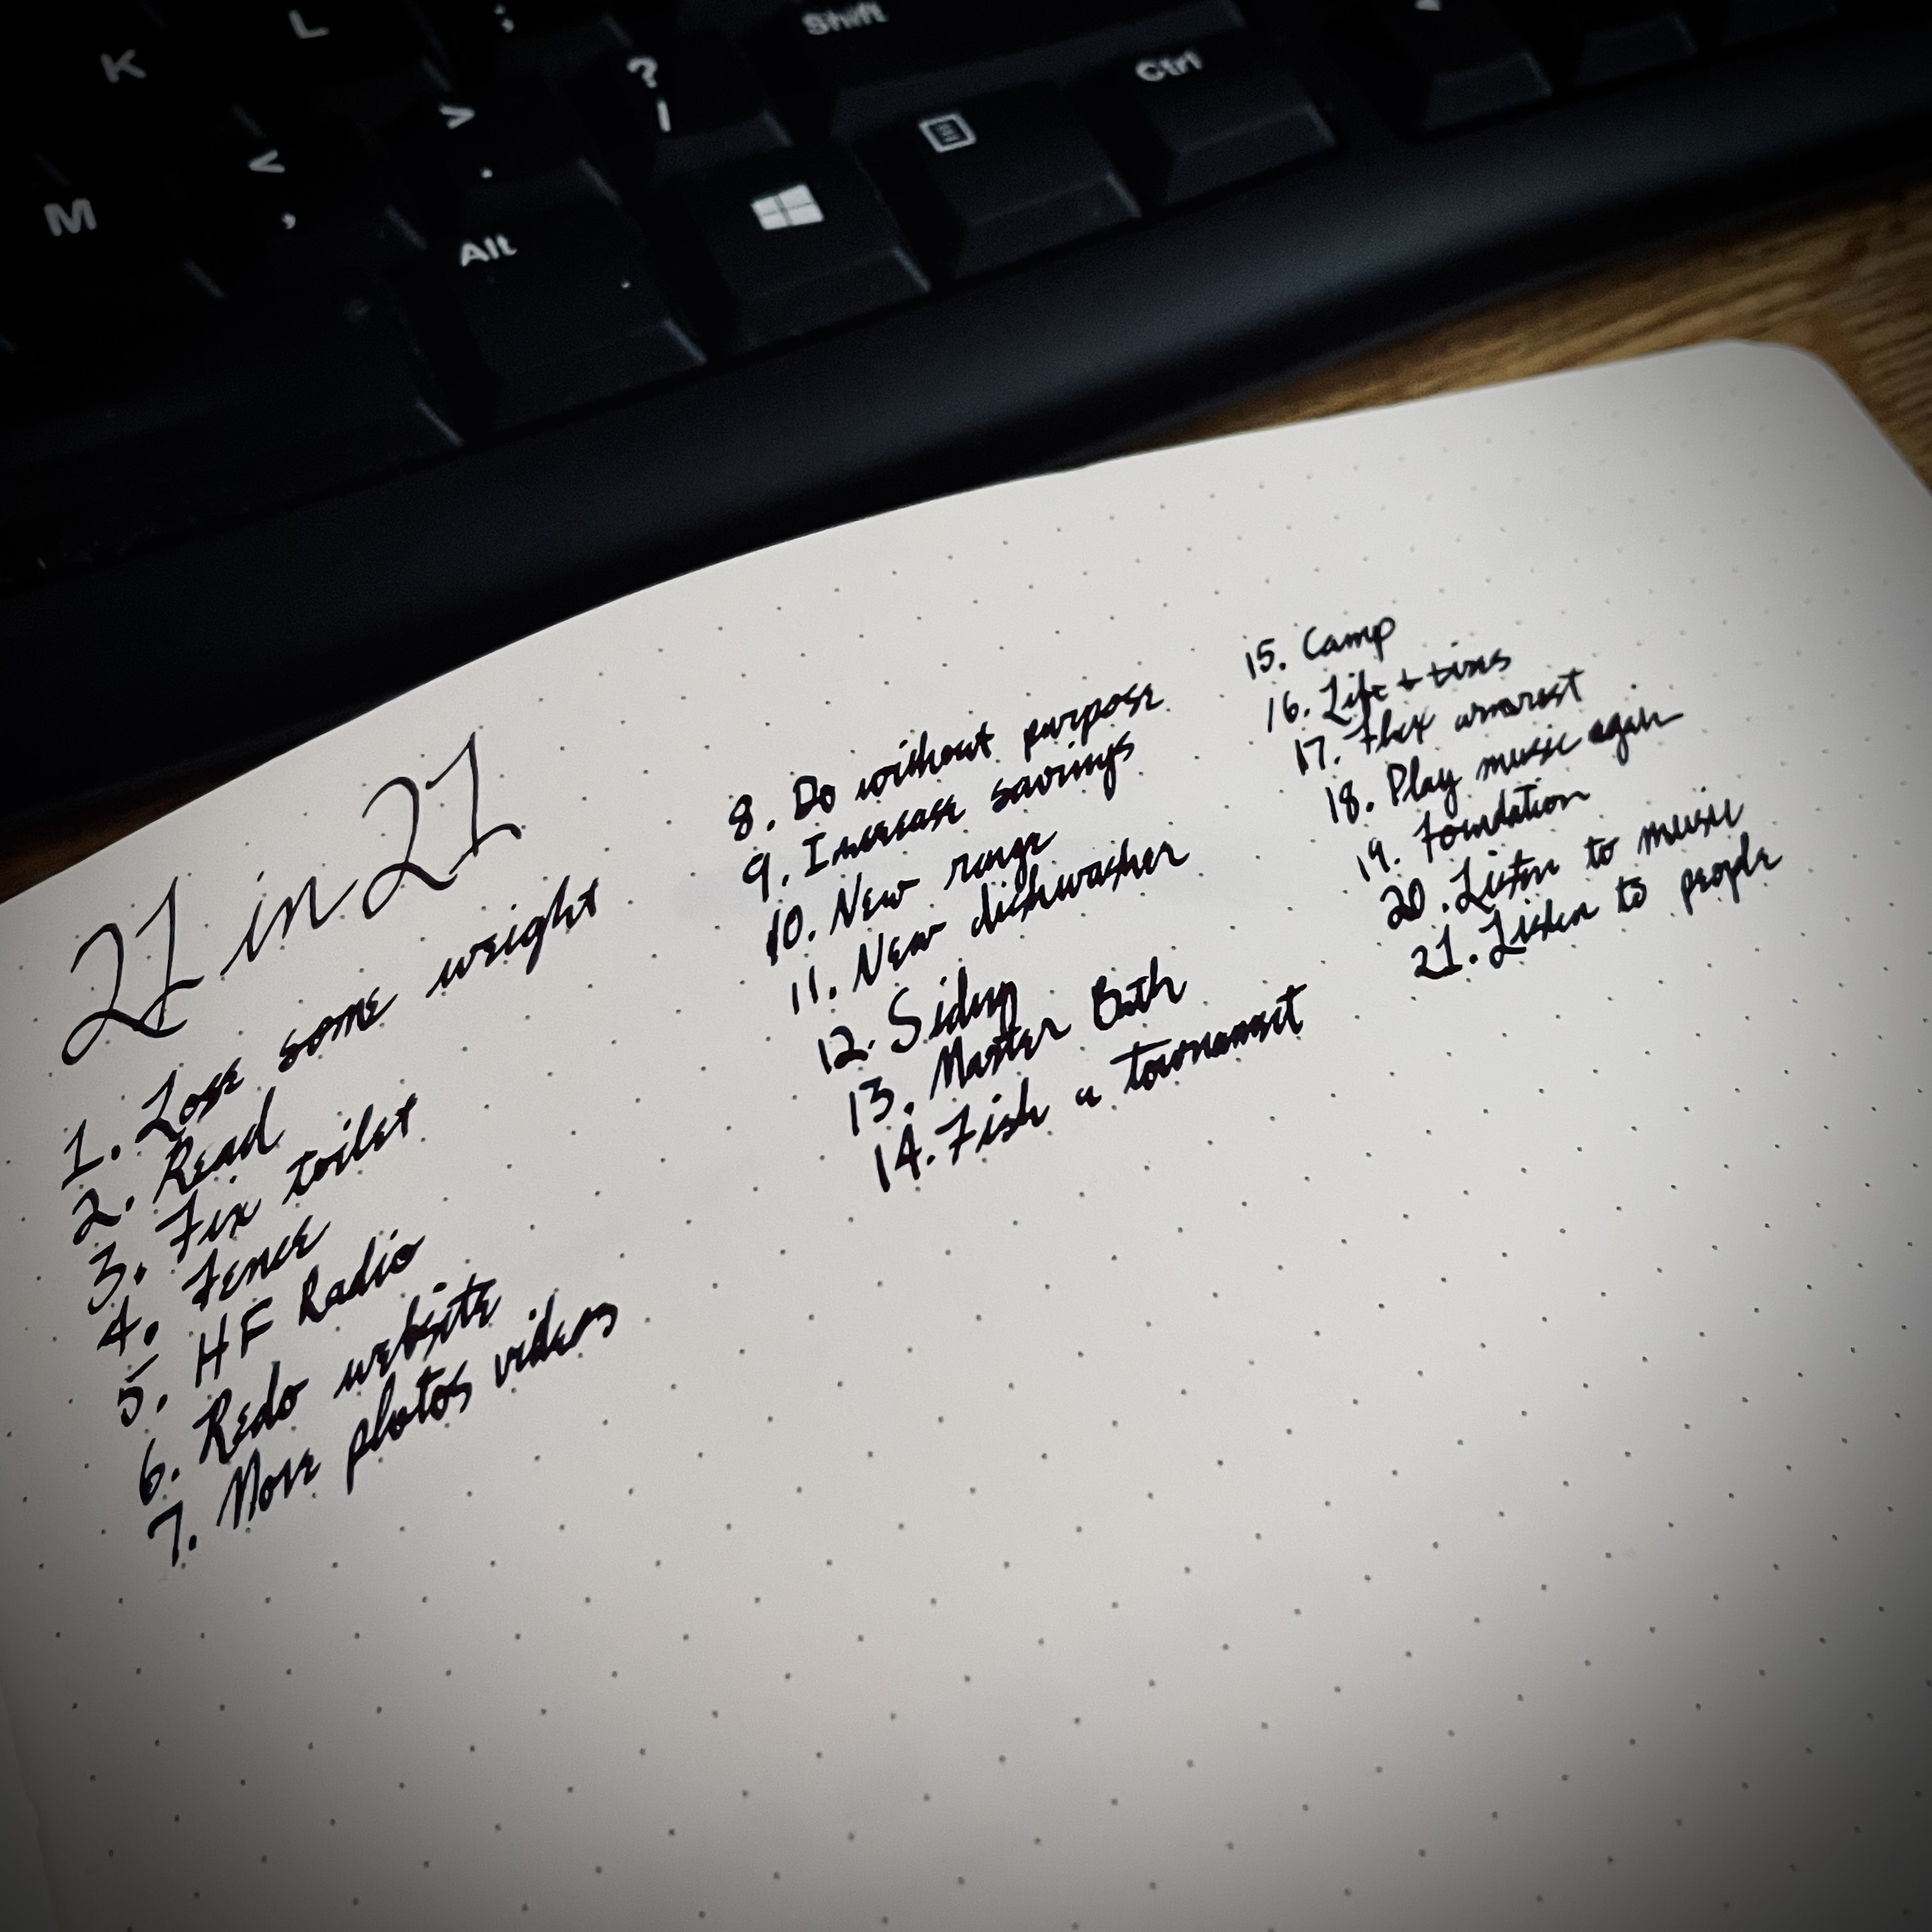 K
L
;
Shift
M
<
,
>
.
?
/
Alt
Ctrl
21 in 21
1. Lose some weight
2. Read
3. Fix toilet
4. Fence
5. HF Radio
6. Redo website
7. More photos videos
8. Do without purpose
9. Increase savings
10. New range
11. New dishwasher
12. Siding
13. Master Bath
14. Fish a tournament
15. Camp
16. Life +
17. armrest
18. Play music again
19. Foundation
20. Listen to music
21. Listen to people